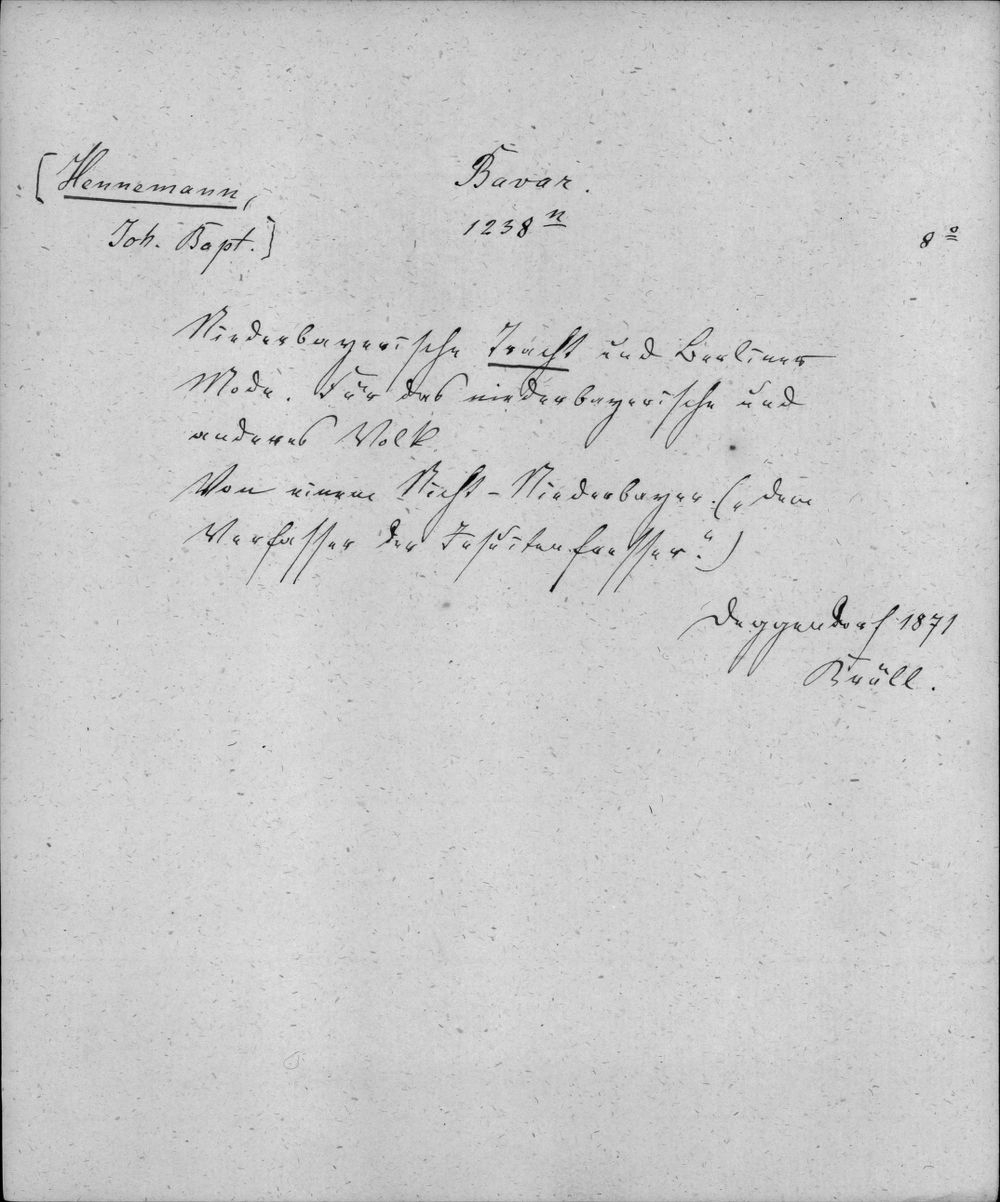 [Hennemann,
Joh. Bapt.]
Bavar.
1238 n
8°
Niederbayerische Tracht und Berliner
Mode. Für das niederbayerische und
anderes Volk.
Von einem Nicht-Niederbayer. („dem
Verfasser der Jesuitenfresser.“)
Deggendorf 1871
Krüll.